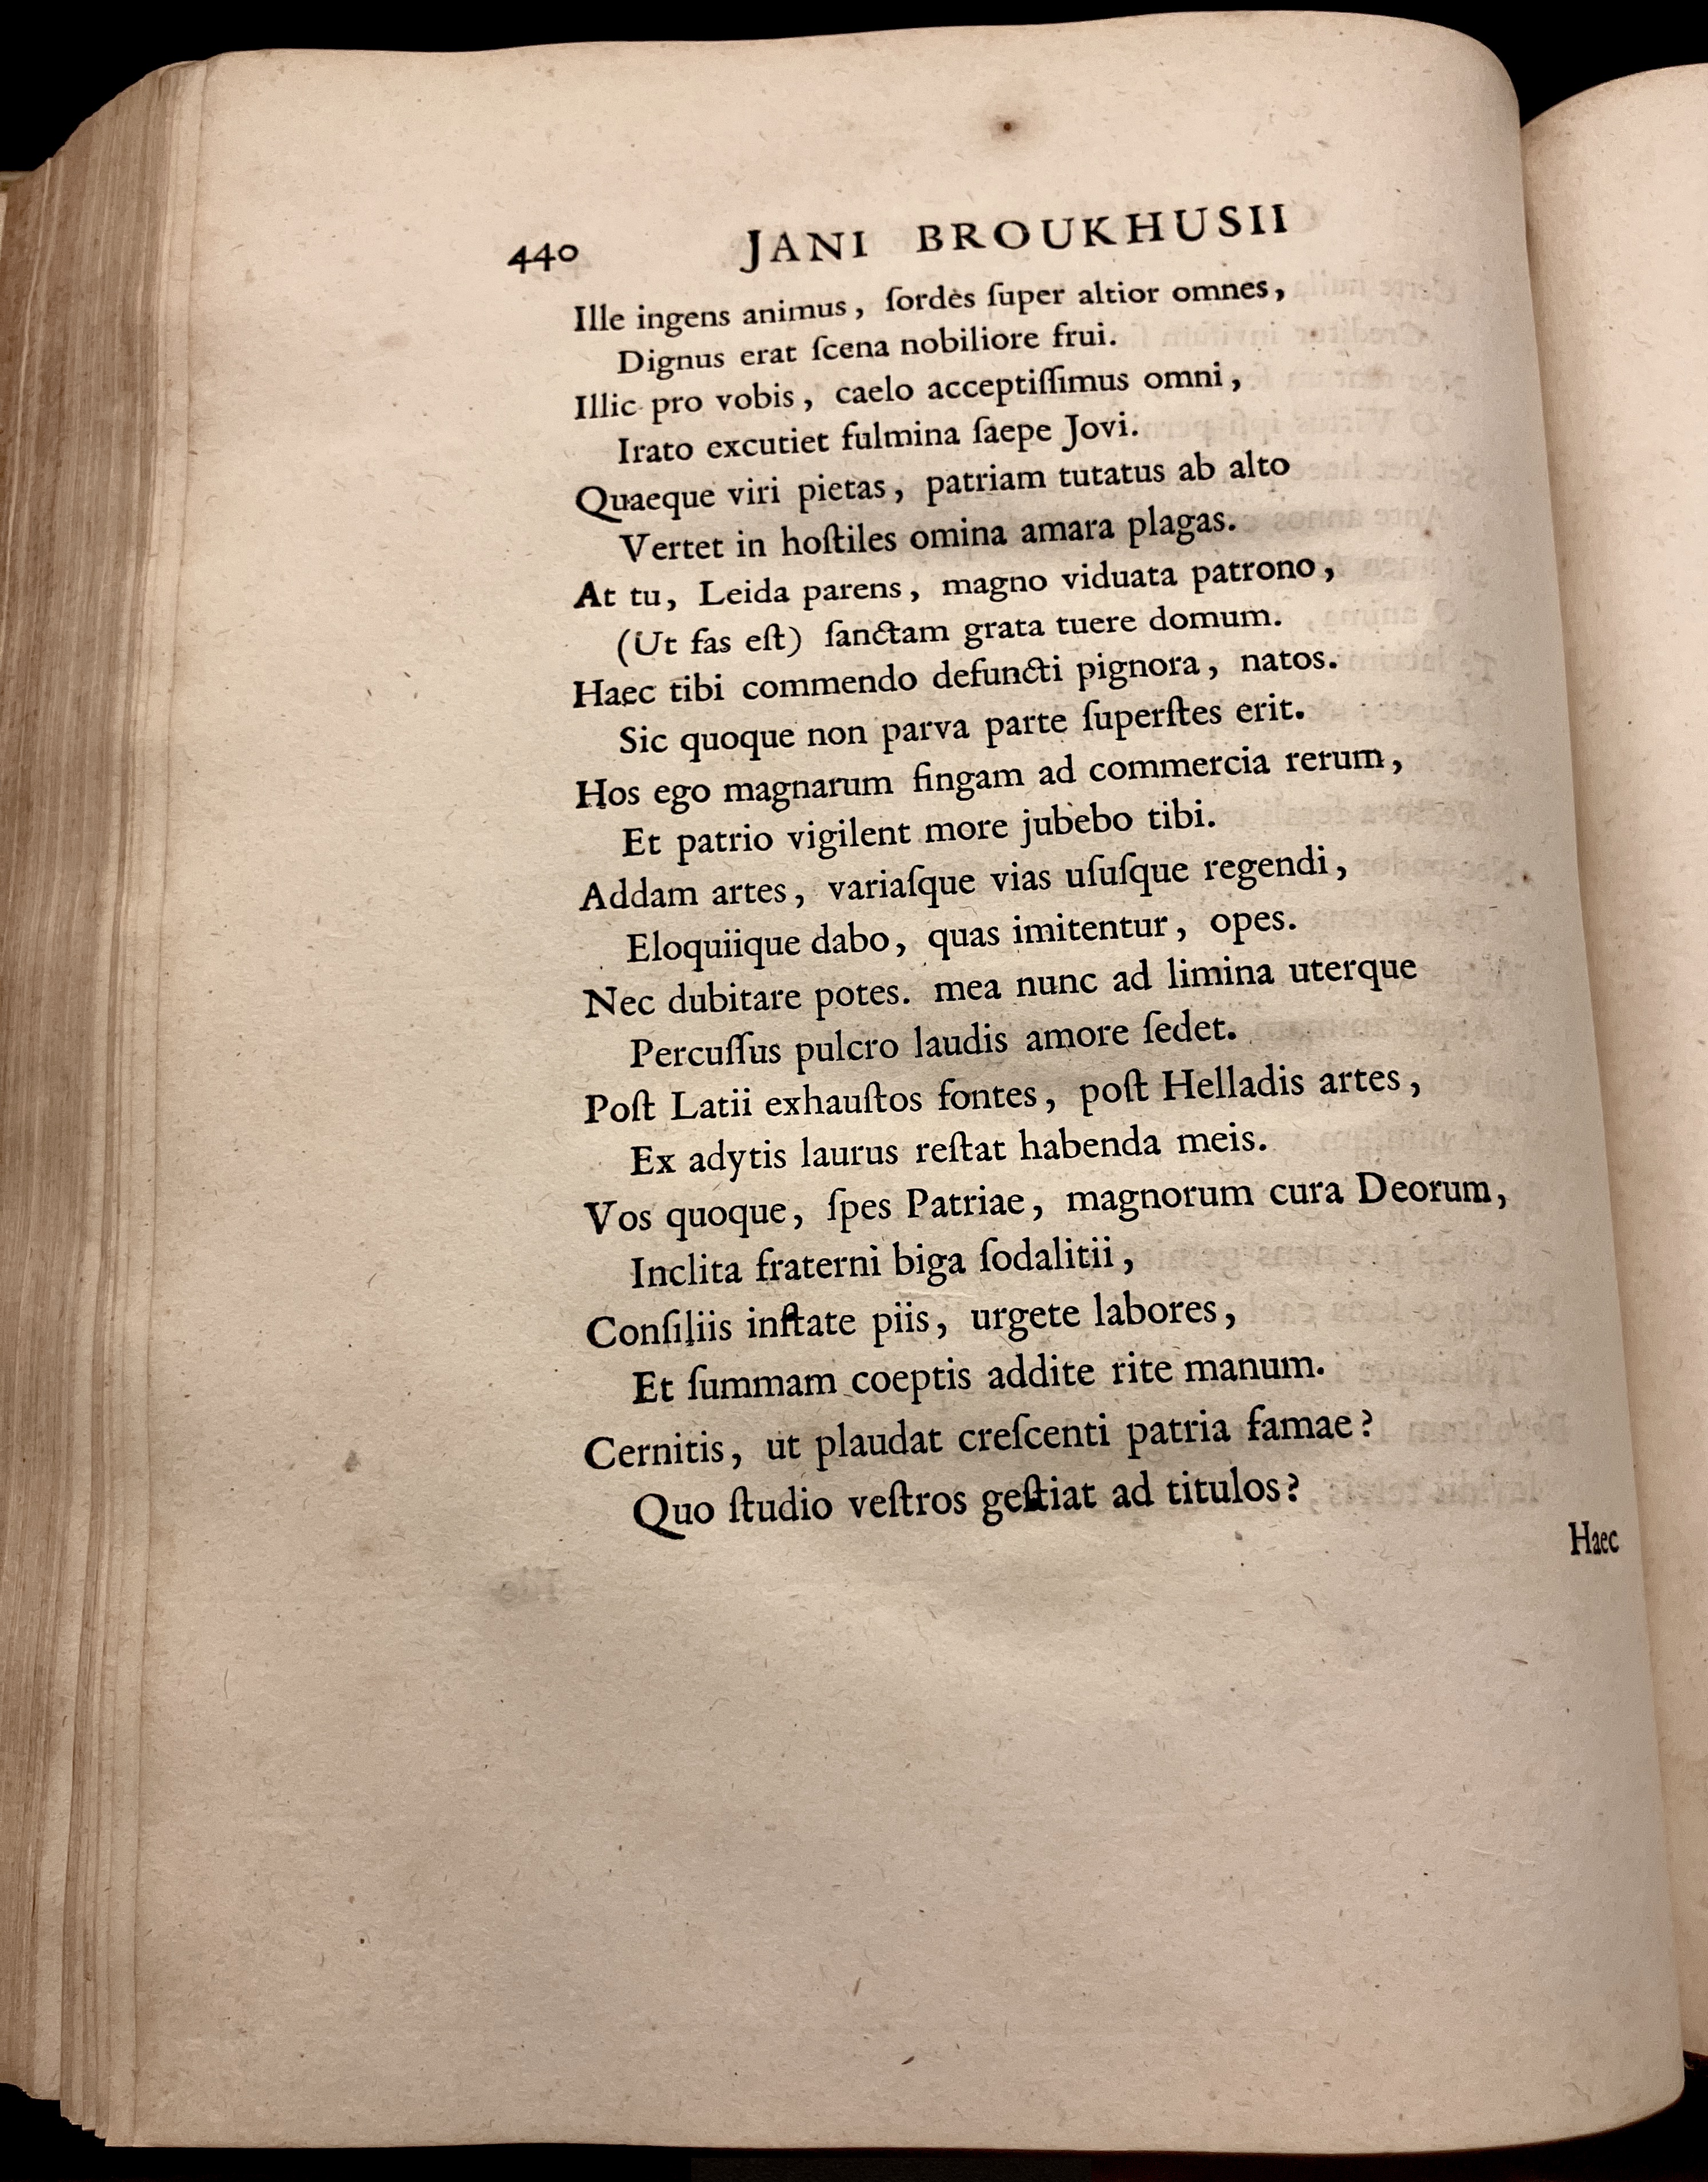 440 JANI BROUKHUSII
Ille ingens animus, ſordes ſuper altior omnes,
Dignus erat ſcena nobiliore frui.
Illic pro vobis, caelo acceptiſſimus omni,
Irato excutiet fulmina ſaepe Jovi.
Quaeque viri pietas, patriam tutatus ab alto
Vertet in hoſtiles omina amara plagas.
At tu, Leida parens, magno viduata patrono,
(Ut fas eſt) ſanctam grata tuere domum.
Haec tibi commendo defuncti pignora, natos.
Sic quoque non parva parte ſuperſtes erit.
Hos ego magnarum fingam ad commercia rerum,
Et patrio vigilent more jubebo tibi.
Addam artes, variaſque vias uſuſque regendi,
Eloquiique dabo, quas imitentur, opes.
Nec dubitare potes. mea nunc ad limina uterque
Percuſſus pulcro laudis amore ſedet.
Poſt Latii exhauſtos fontes, poſt Helladis artes,
Ex adytis laurus reſtat habenda meis.
Vos quoque, ſpes Patriae, magnorum cura Deorum,
Inclita fraterni biga ſodalitii,
Conſiliis inſtate piis, urgete labores,
Et ſummam coeptis addite rite manum.
Cernitis, ut plaudat creſcenti patria famae?
Quo ſtudio veſtros geſtiat ad titulos?
Haec